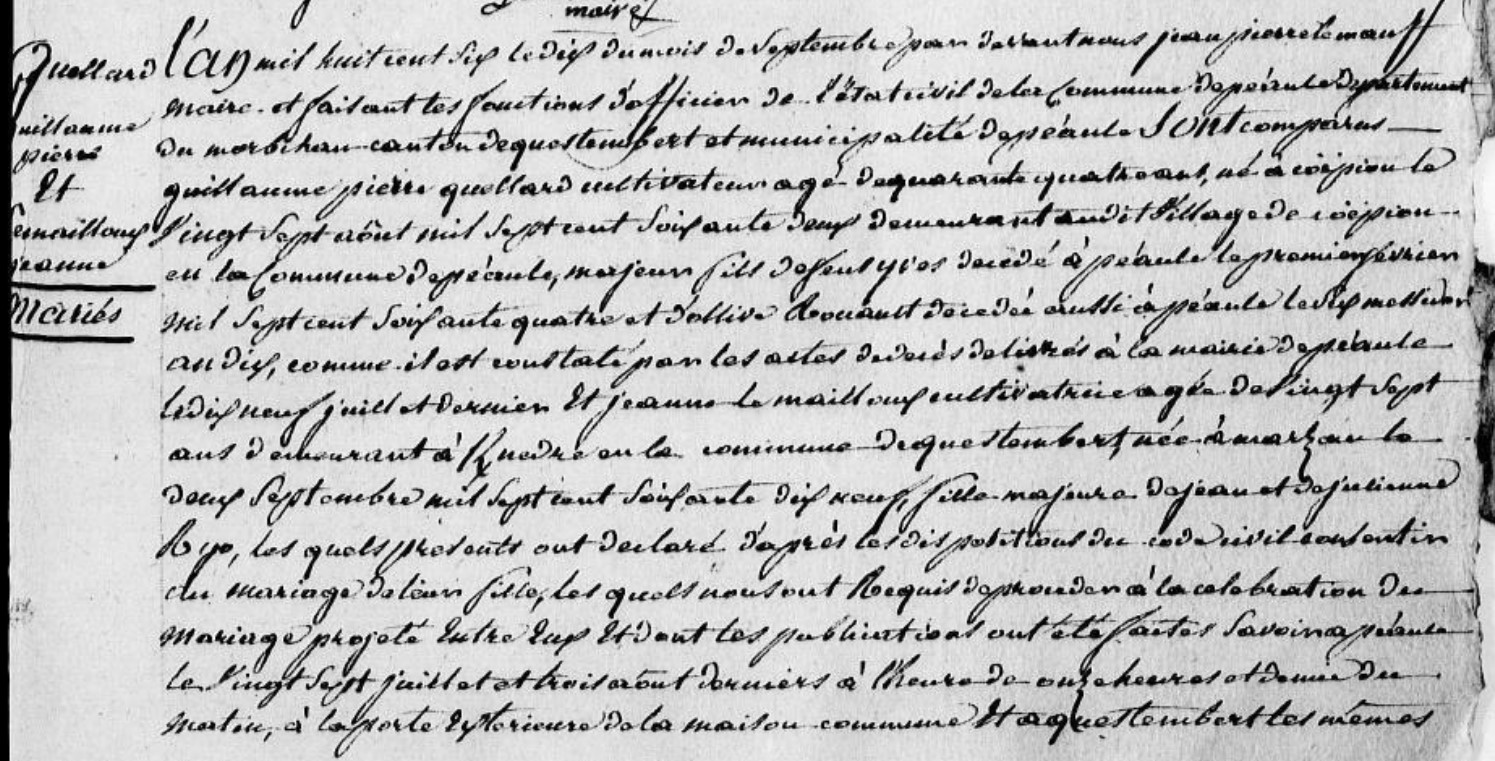 maire
Quellard
guillaume
pierre
Et
Lemailloux
jeanne
Mariés
L'an mil huit cent six le dix du mois de Septembre par devant nous jean pierre le mauff
maire et faisant les fonctions d'officier de l'état civil de la Commune de péaule département
du morbihan canton de questembert et municipalité de péaule Sont comparus
guillaume pierre quellard cultivateur agé de quarante quatre ans, né à coëpion le
Vingt Sept aôut mil Sept cent Soixante deux demeurant audit Village de coëpion
en la Commune de péaule, majeur fils de feu yves decedé à péaule le premier fevrier
mil Sept cent Soixante quatre et d'ollive Rouault decedée aussi à péaule le dix messidor
an dix, comme il est constaté par les actes de decès delivrés à la mairie de péaule
le dix neuf juillet dernier Et jeanne le mailloux cultivatrice agée de Vingt Sept
ans demeurant à en la commune de questembert, née à marzan le
deux Septembre mil Sept cent Soixante dix neuf, fille majeure de jean et de julienne
Ryo, les quels présents ont declaré d'après les dispositions du code civil consentir
au mariage de leur fille, les quels nous ont Requis de proceder à la celebration du
mariage projeté Entre Eux Et dont les publications ont été faites Savoir a péaule
le Vingt Sept juillet et trois aout derniers à l'heure de onze heures et demie du
matin, à la porte Exterieure de la maison commune Et a questembert les mêmes